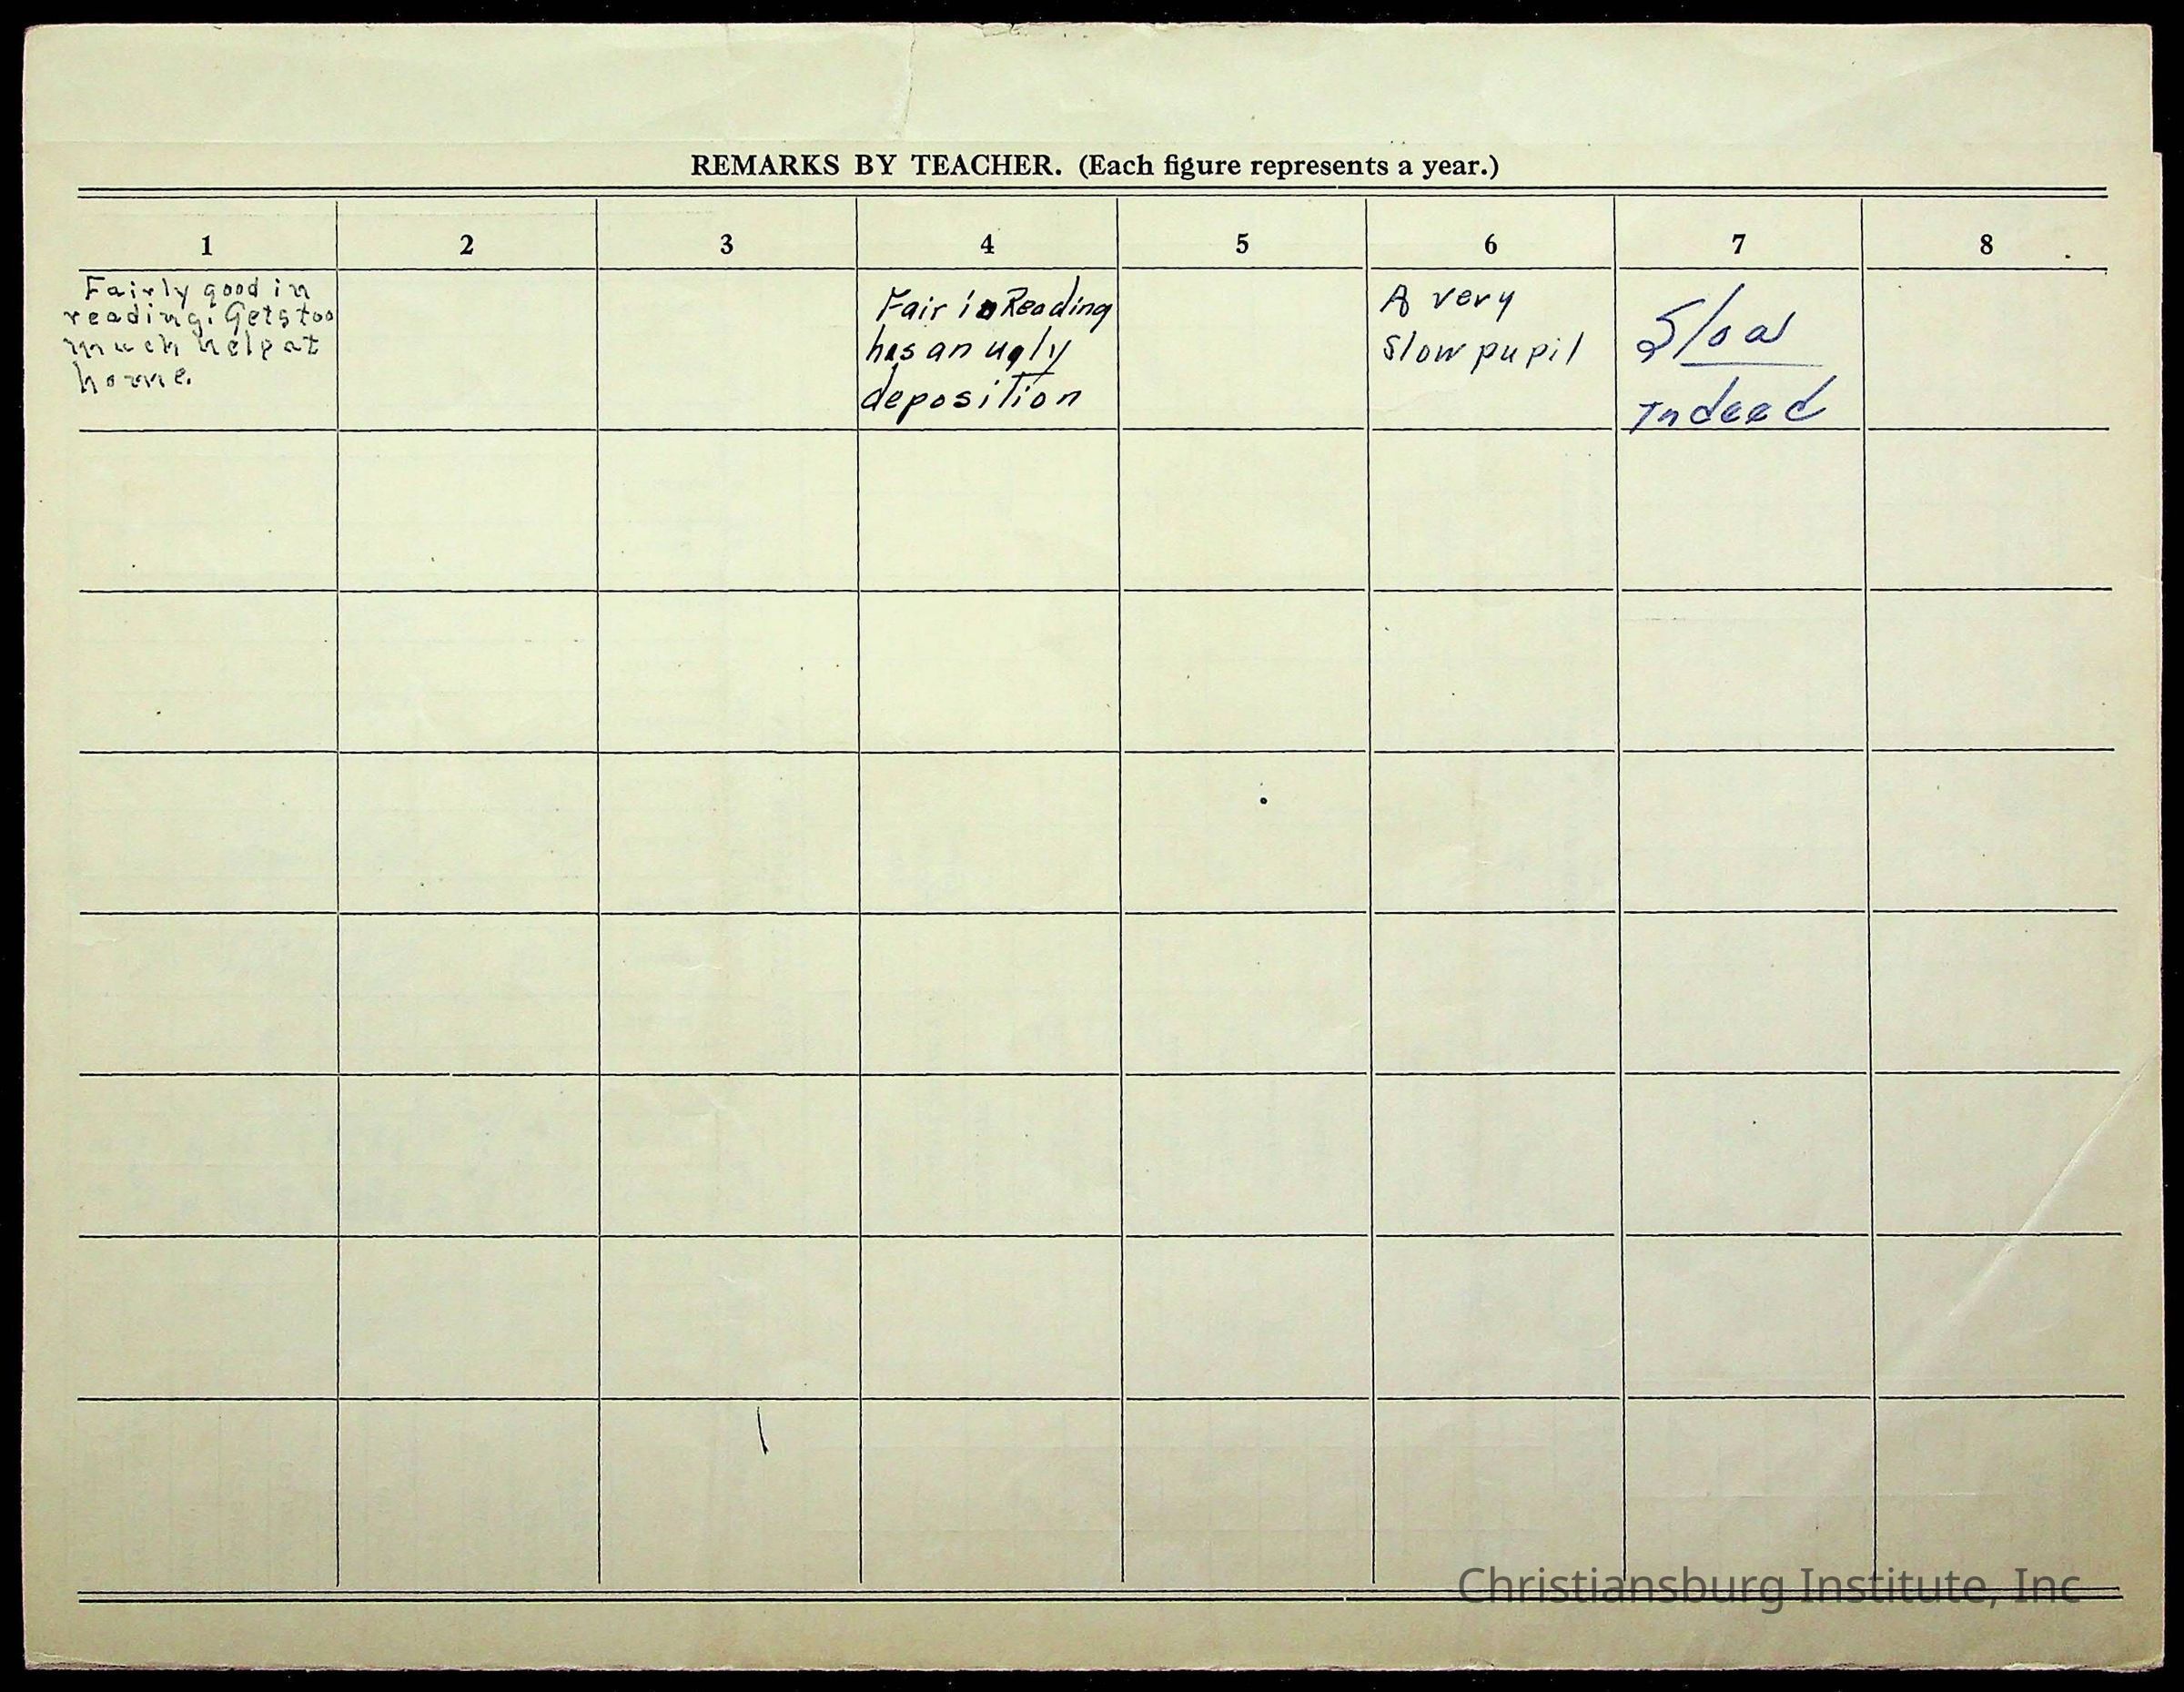 REMARKS BY TEACHER. (Each figure represents a year.)
1 2 3 4 5 6 7 8
Fairly good in
reading. Gets too
much help at
home.
Fair in Reading
has an ugly
deposition
A very
Slow pupil
Slow
Indeed
Christiansburg Institute, Inc